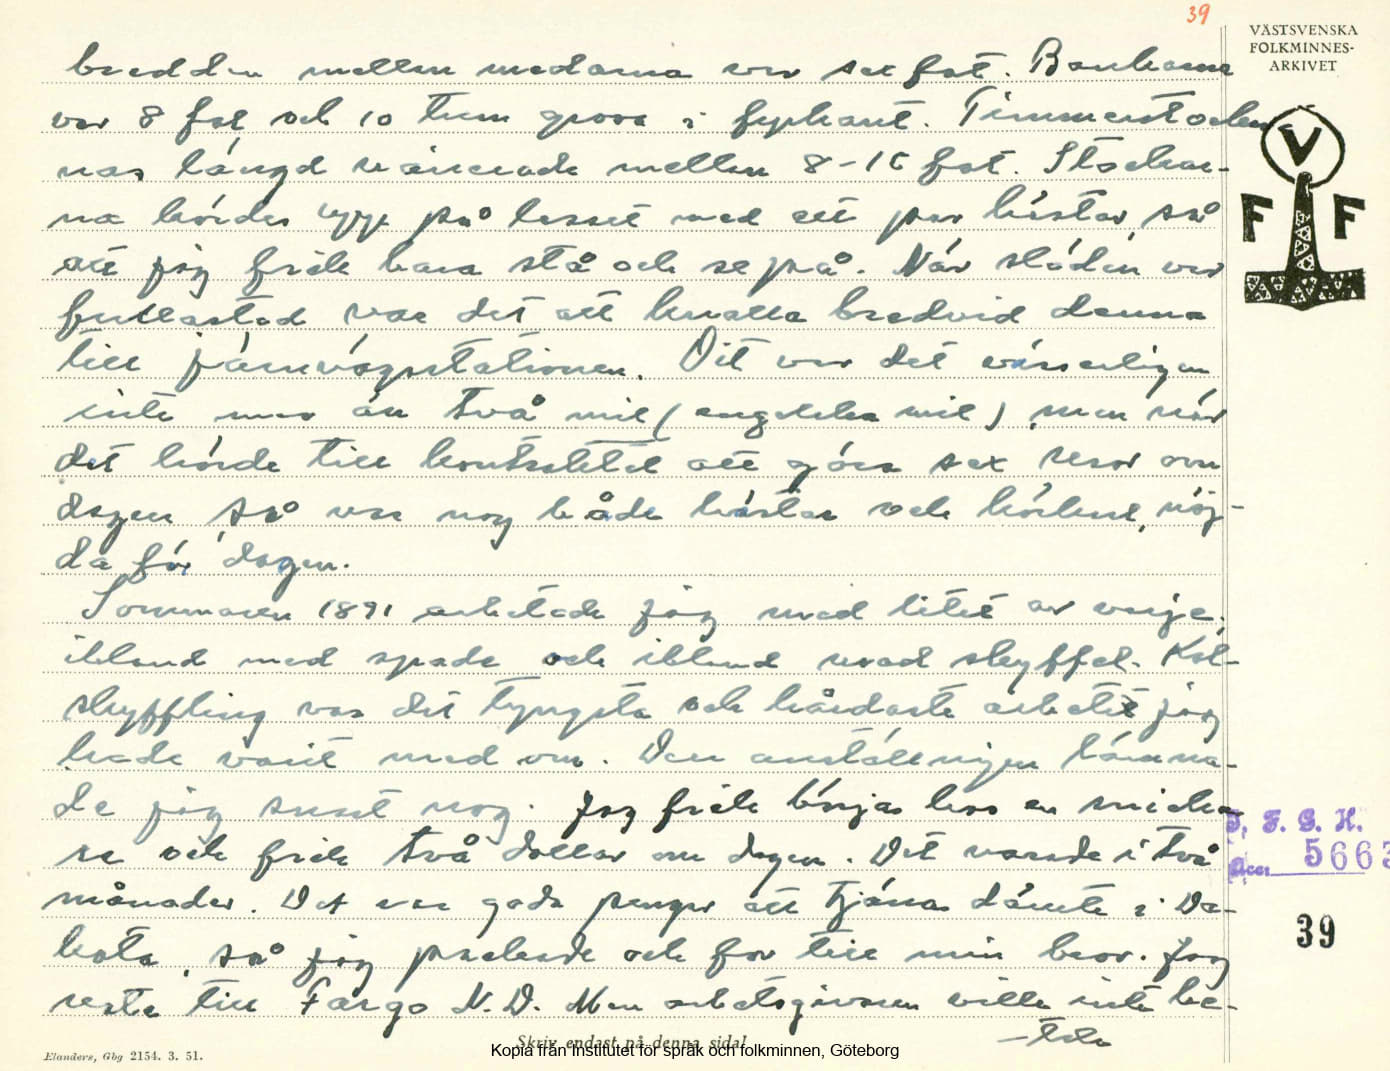 39
VÄSTSVENSKA
FOLKMINNES-
ARKIVET
V
F F
bredden mellan medarna var sex fot. Bankarna
var 8 fot och 10 tum grova i fyrkant. Timmerstockar-
nas längd varierade mellan 8-16 fot. Stockar-
na kördes upp på lasset med ett par hästar, så
att jag fick bara stå och se på. När släden var
fullastad var det att knalla bredvid denna
till järnvägsstationen. Dit var det visserligen
inte mer än två mil (engelska mil), men när
det hörde till kontraktet att göra sex resor om
dagen, så var nog både hästar och körkarl, nöj-
da för dagen.
Sommaren 1891 arbetade jag med litet av varje,
ibland med spade och ibland med skyffel. Kol-
skyffling var det tyngsta och hårdaste arbetet jag
hade varit med om. Den anställningen lämna-
de jag snart nog. Jag fick börja hos en snicka-
re och fick två dollar om dagen. Det varade i två
månader. Det var goda pengar att tjäna därute i Da-
kota, så jag packade och for till min bror. Jag
reste till Fargo N.D. Men arbetsgivaren ville inte be-
-tala
I. F. G. H.
Acc. 5663
39
Skriv endast på denna sida!
Elanders, Gbg 2154. 3. 51.
Kopia från Institutet för språk och folkminnen, Göteborg